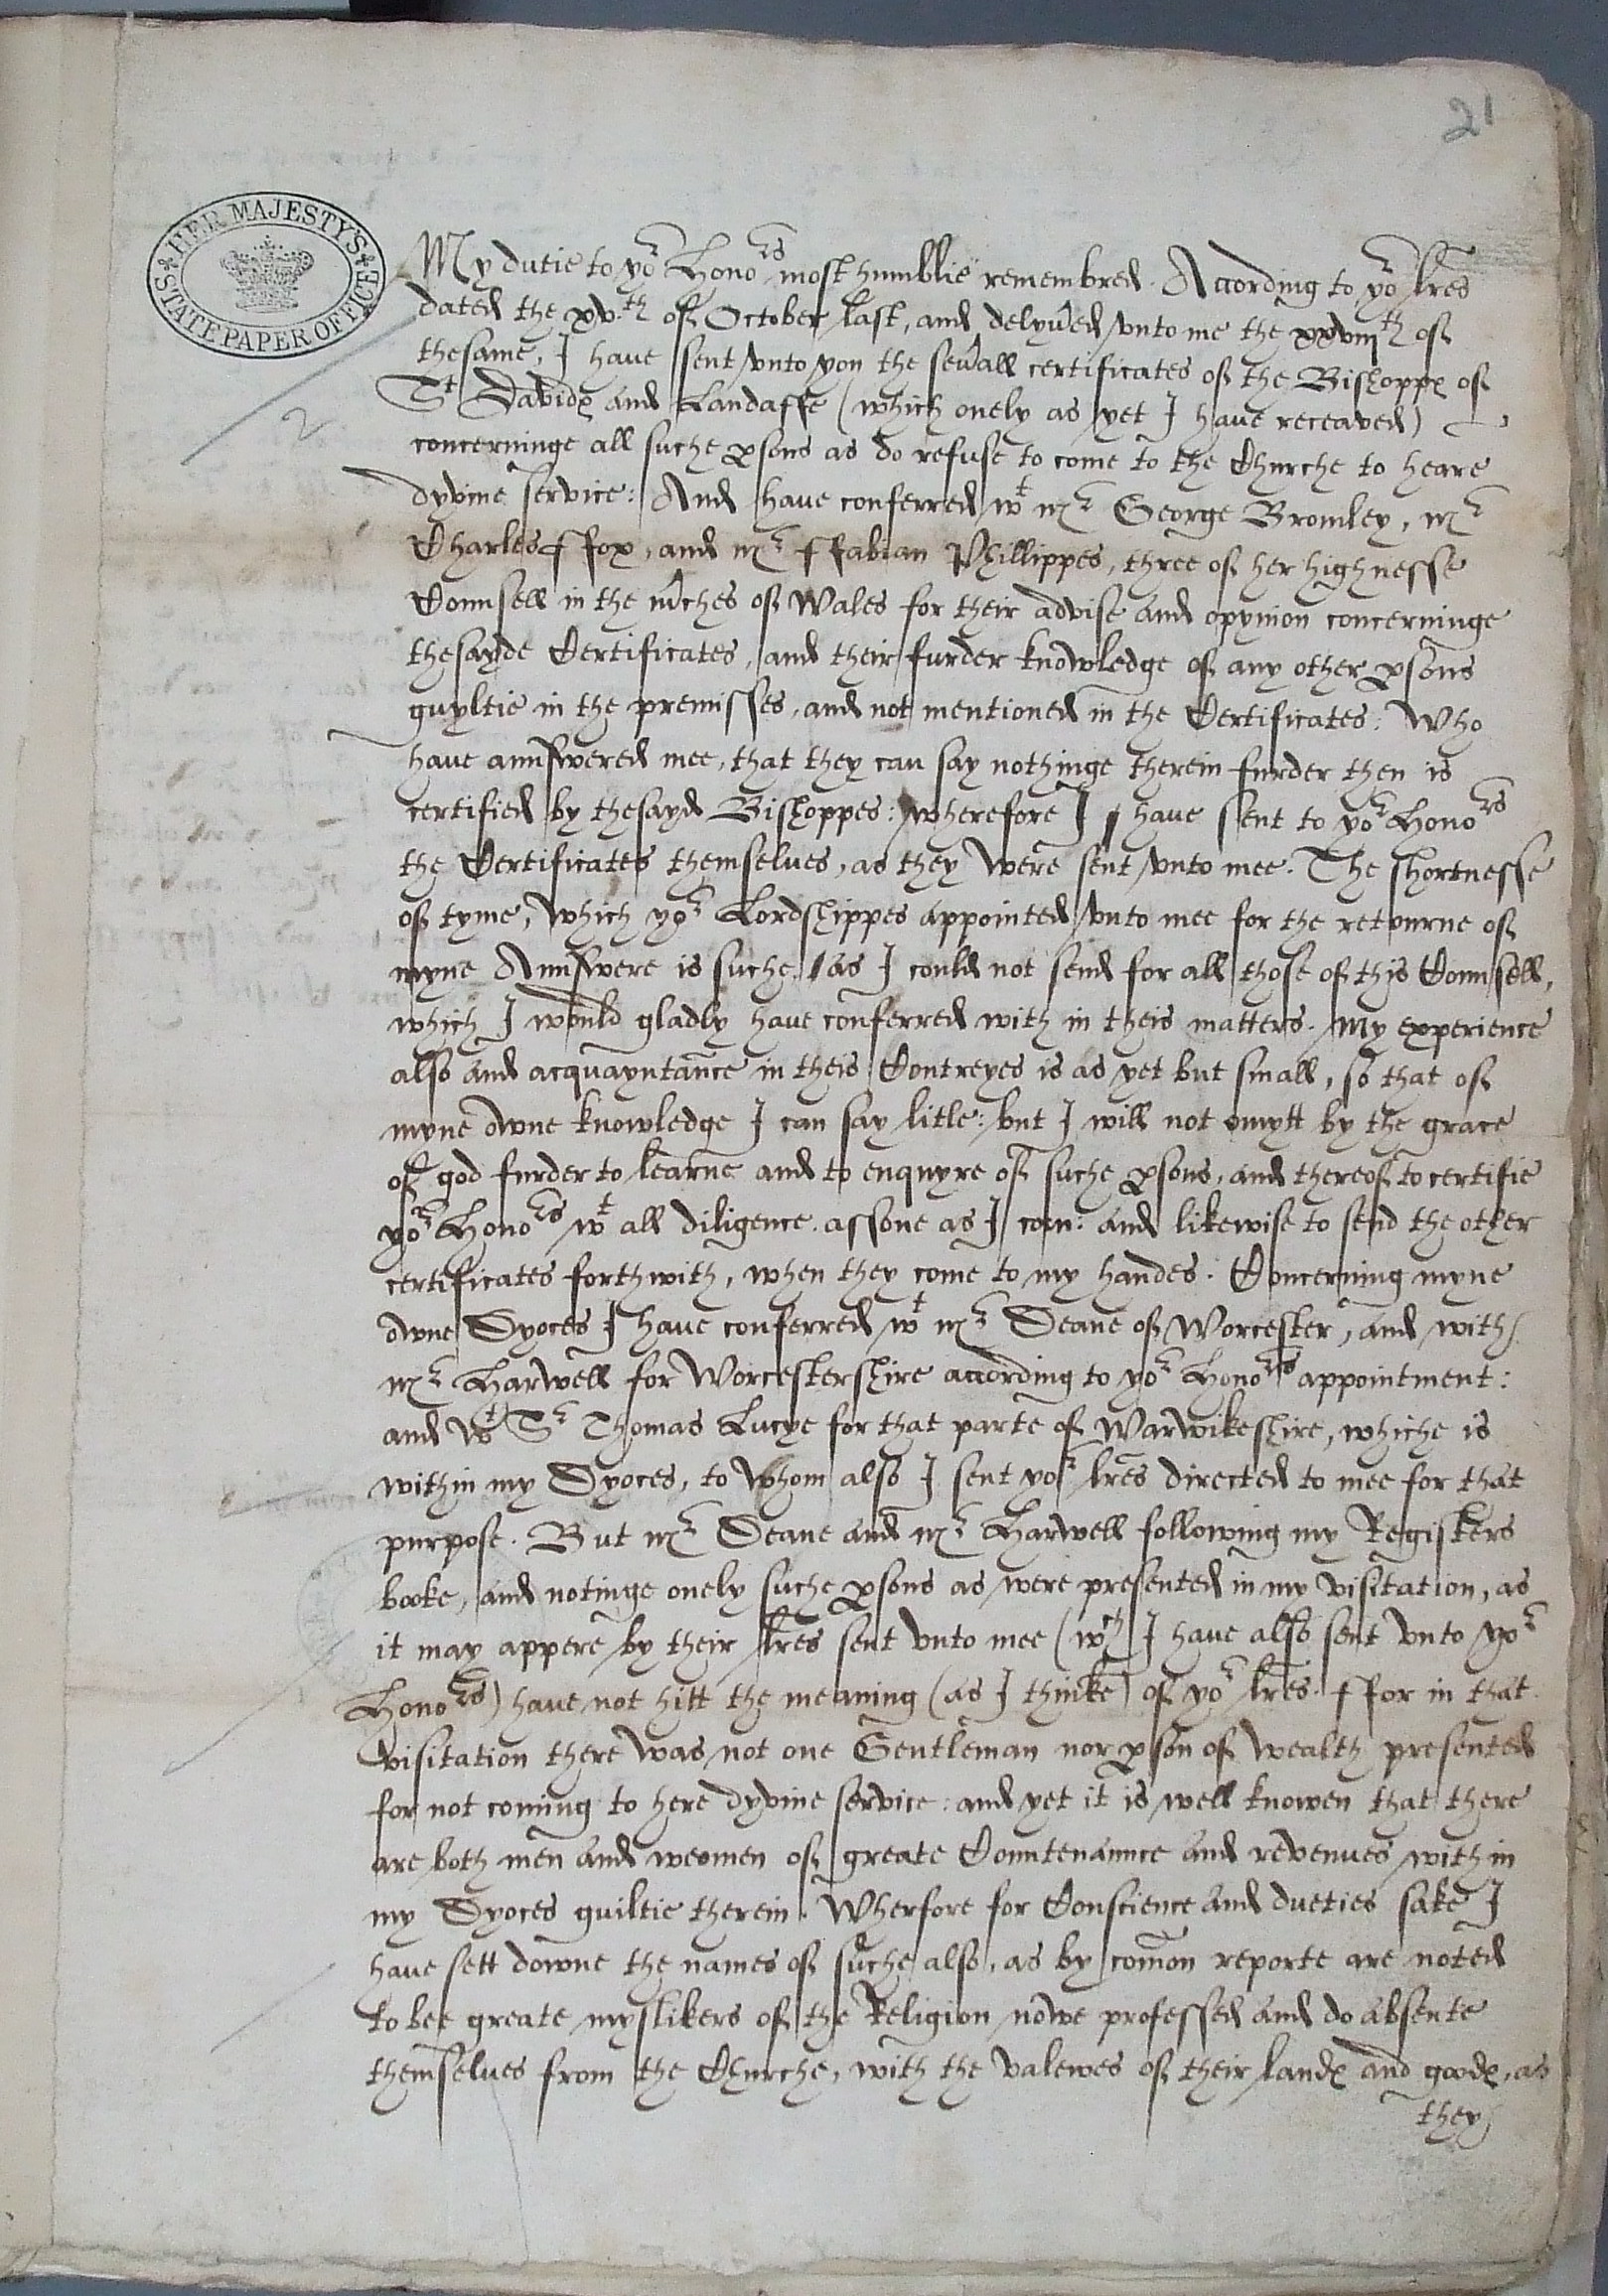 21
HER MAJESTY'S
STATE PAPER OFFICE
2
My dutie to yor Honors most humblie remembred. According to yor lres
dated the xvth of October last, and delyũed vnto me the xxviijth of
thesame, I have sent vnto you the seũall certificates of the Bishoppes of
St Davides and Landaffe (which onely as yet I have receaved)
concerninge all suche psons as do refuse to come to the Churche to heare
dyvine service: And have conferred wt mr George Bromley, mr
Charles ffox, and mr ffabian Phillippes, three of her highnesse
Counsell in the mches of Wales for their advise and opynion concerninge
thesayde Certificates, and their furder knowledge of any other psons
guyltie in the premisses, and not mentioned in the Certificates: Who
have aunswered mee, that they can say nothinge therein furder then is
certified by thesayd Bishoppes: wherefore I have sent to yor Honors
the Certificates themselves, as they were sent vnto mee. The shortnesse
of tyme, which yor Lordshippes appointed vnto mee for the retourne of
myne Aunswere is suche, as I could not send for all those of this Counsell,
which I would gladly have conferred with in theis matters. My experience
also and acquayntance in theis Contreyes is as yet but small, so that of
myne owne knowledge I can say litle: but I will not omytt by the grace
of god furder to learne and to enquyre of suche psons, and thereof to certifie
yor Honors wt all diligence assone as I can: and likewise to send the other
certificates forthwith, when they come to my handes. Concerning myne
owne Dyoces I have conferred wt mr Deane of Worcester, and with
mr Harwell for Worcestershire according to yor Honors appointment:
and wt Sr Thomas Lucye for that parte of Warwikeshire, whiche is
within my Dyoces, to whom also I sent yor lres directed to mee for that
purpose. But mr Deane and mr Harwell following my Registers
booke, and notinge onely suche psons as were presented in my visitation, as
it may appere by their lres sent vnto mee (wch I have also sent vnto yor
Honors) have not hitt the meaning (as I thinke) of yor lres. ffor in that
visitation there was not one Gentleman nor pson of wealth presented
for not coming to here dyvine service: and yet it is well knowen that there
are both men and weomen of greate Countenaunce and revenues within
my Dyoces guiltie therein. Wherfore for Conscience and dueties sake I
have sett downe the names of suche also, as by comon reporte are noted
to bee greate myslikers of the Religion nowe professed and do absente
themselves from the Churche, with the valewes of their landes and goodes, as
they